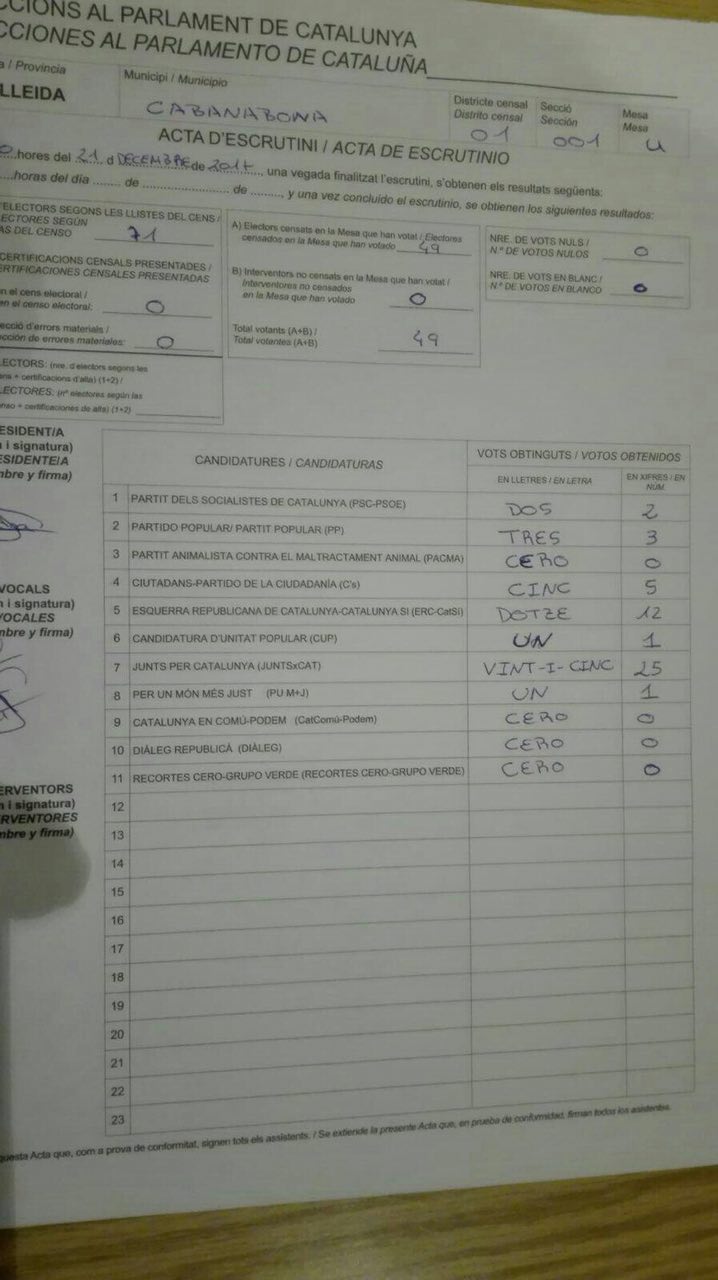 CCIONS AL PARLAMENT DE CATALUNYA
CCIONES AL PARLAMENTO DE CATALUÑA
a / Provincia
LLEIDA
Municipi / Municipio
CABANABONA
Districte censal
Distrito censal
01
Secció
Sección
001
Mesa
Mesa
U
ACTA D'ESCRUTINI / ACTA DE ESCRUTINIO
0...hores del 21 d DECEMBRE de 2017, una vegada finalitzat l'escrutini, s'obtenen els resultats següents:
....horas del día ........ de ...................... de ........, y una vez concluido el escrutinio, se obtienen los siguientes resultados:
ELECTORS SEGONS LES LLISTES DEL CENS /
ECTORES SEGÚN
AS DEL CENSO
71
CERTIFICACIONS CENSALS PRESENTADES /
ERTIFICACIONES CENSALES PRESENTADAS
n el cens electoral /
en el censo electoral: 0
ecció d'errors materials /
cción de errores materiales: 0
LECTORS: (nre. d'electors segons les
ens + certificacions d'alta) (1+2) /
LECTORES: (nº electores según las
nso + certificaciones de alta) (1+2)
A) Electors censats en la Mesa que han votat / Electores
censados en la Mesa que han votado 49
B) Interventors no censats en la Mesa que han votat /
Interventores no censados
en la Mesa que han votado 0
Total votants (A+B) /
Total votantes (A+B) 49
NRE. DE VOTS NULS /
N.º DE VOTOS NULOS 0
NRE. DE VOTS EN BLANC /
N.º DE VOTOS EN BLANCO 0
ESIDENT/A
i signatura)
ESIDENTE/A
mbre y firma)
VOCALS
i signatura)
VOCALES
mbre y firma)
ERVENTORS
i signatura)
RVENTORES
mbre y firma)
CANDIDATURES / CANDIDATURAS
VOTS OBTINGUTS / VOTOS OBTENIDOS
EN LLETRES / EN LETRA
EN XIFRES / EN NÚM.
1 PARTIT DELS SOCIALISTES DE CATALUNYA (PSC-PSOE) DOS 2
2 PARTIDO POPULAR/ PARTIT POPULAR (PP) TRES 3
3 PARTIT ANIMALISTA CONTRA EL MALTRACTAMENT ANIMAL (PACMA) CERO 0
4 CIUTADANS-PARTIDO DE LA CIUDADANÍA (C's) CINC 5
5 ESQUERRA REPUBLICANA DE CATALUNYA-CATALUNYA SÍ (ERC-CatSí) DOTZE 12
6 CANDIDATURA D'UNITAT POPULAR (CUP) UN 1
7 JUNTS PER CATALUNYA (JUNTSxCAT) VINT-I-CINC 25
8 PER UN MÓN MÉS JUST (PU M+J) UN 1
9 CATALUNYA EN COMÚ-PODEM (CatComú-Podem) CERO 0
10 DIÀLEG REPUBLICÀ (DIÀLEG) CERO 0
11 RECORTES CERO-GRUPO VERDE (RECORTES CERO-GRUPO VERDE) CERO 0
12
13
14
15
16
17
18
19
20
21
22
23
questa Acta que, com a prova de conformitat, signen tots els assistents. / Se extiende la presente Acta que, en prueba de conformidad, firman todos los asistentes.